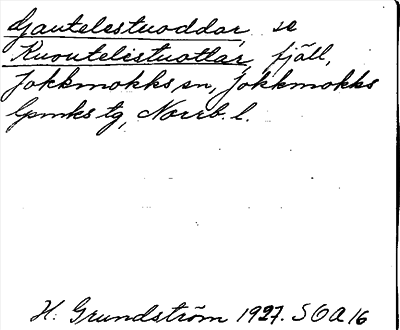 djautelestuoddar, se
Kuoutelistuottar, fjäll,
Jokkmokks sn, Jokkmokks
lpmks tg, Norrb. l.
H. Grundström 1927. SOA 16